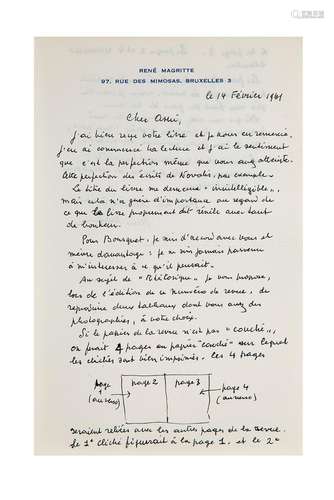 RENÉ MAGRITTE
97, RUE DES MIMOSAS, BRUXELLES 3
le 14 Février 1961
Cher Ami,
J'ai bien reçu votre livre et je vous en remercie.
J'en ai commencé la lecture et j'ai le sentiment
que c'est la perfection même que vous avez atteinte.
Cette perfection des écrits de Novalis, par exemple.
Le titre du livre me demeure "inintelligible",
mais cela n'a guère d'importance au regard de
ce que le livre proprement dit révèle avec tant
de bonheur.
Pour Bousquet, je suis d'accord avec vous et
même davantage : je ne suis jamais parvenu
à m'intéresser à ce qu'il pensait.
Au sujet de "Rhétorique", je vous propose,
lors de l'édition de ce numéro de revue, de
reproduire deux tableaux dont vous avez des
photographies, à votre choix.
Si le papier de la revue n'est pas "couché",
on ferait 4 pages en papier "couché" sur lequel
les clichés sont bien imprimés. Les 4 pages
page 1 (au verso)
page 2
page 3
page 4 (au verso)
seraient reliées avec les autres pages de la revue.
Le 1er cliché figurerait à la page 1. et le 2e